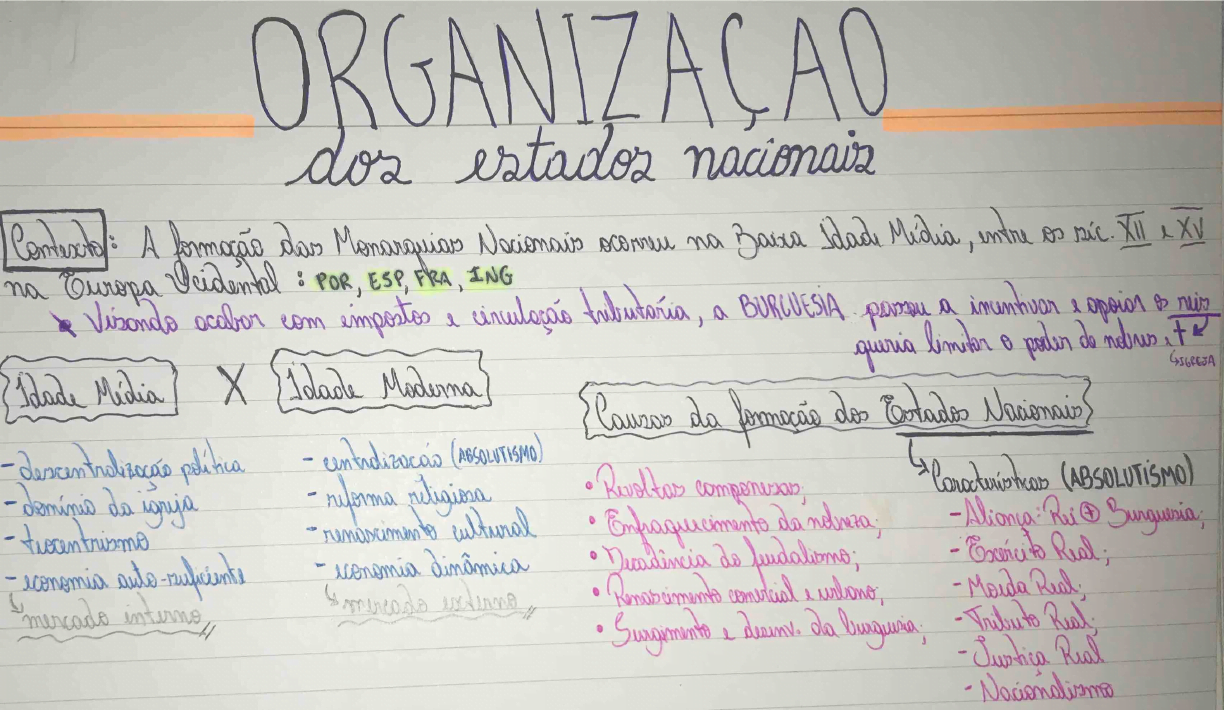 ORGANIZAÇAO
dos estados nacionais
Contexto: A formação das Monarquias Nacionais ocorreu na Baixa Idade Média, entre os séc. XII e XV
na Europa Ocidental : POR, ESP, FRA, ING
Visando acabar com impostos e circulação tributária, a BURGUESIA passou a incentivar e apoiar os reis
queria limitar o poder do nobres e +
↳IGREJA
Idade Média X Idade Moderna
Causas da formação dos Estados Nacionais
- descentralização política
- domínio da igreja
- teocentrismo
- economia auto-suficiente
↳ mercado interno
- centralização (ABSOLUTISMO)
- reforma religiosa
- renascimento cultural
- economia dinâmica
↳ mercado externo
• Revoltas camponesas;
• Enfraquecimento da nobreza;
• Decadência do feudalismo;
• Renascimento comercial e urbano;
• Surgimento e desenv. da burguesia;
↳ Características (ABSOLUTISMO)
- Aliança: Rei ⊕ Burguesia;
- Exército Real;
- Moeda Real;
- Tributo Real;
- Justiça Real
- Nacionalismo